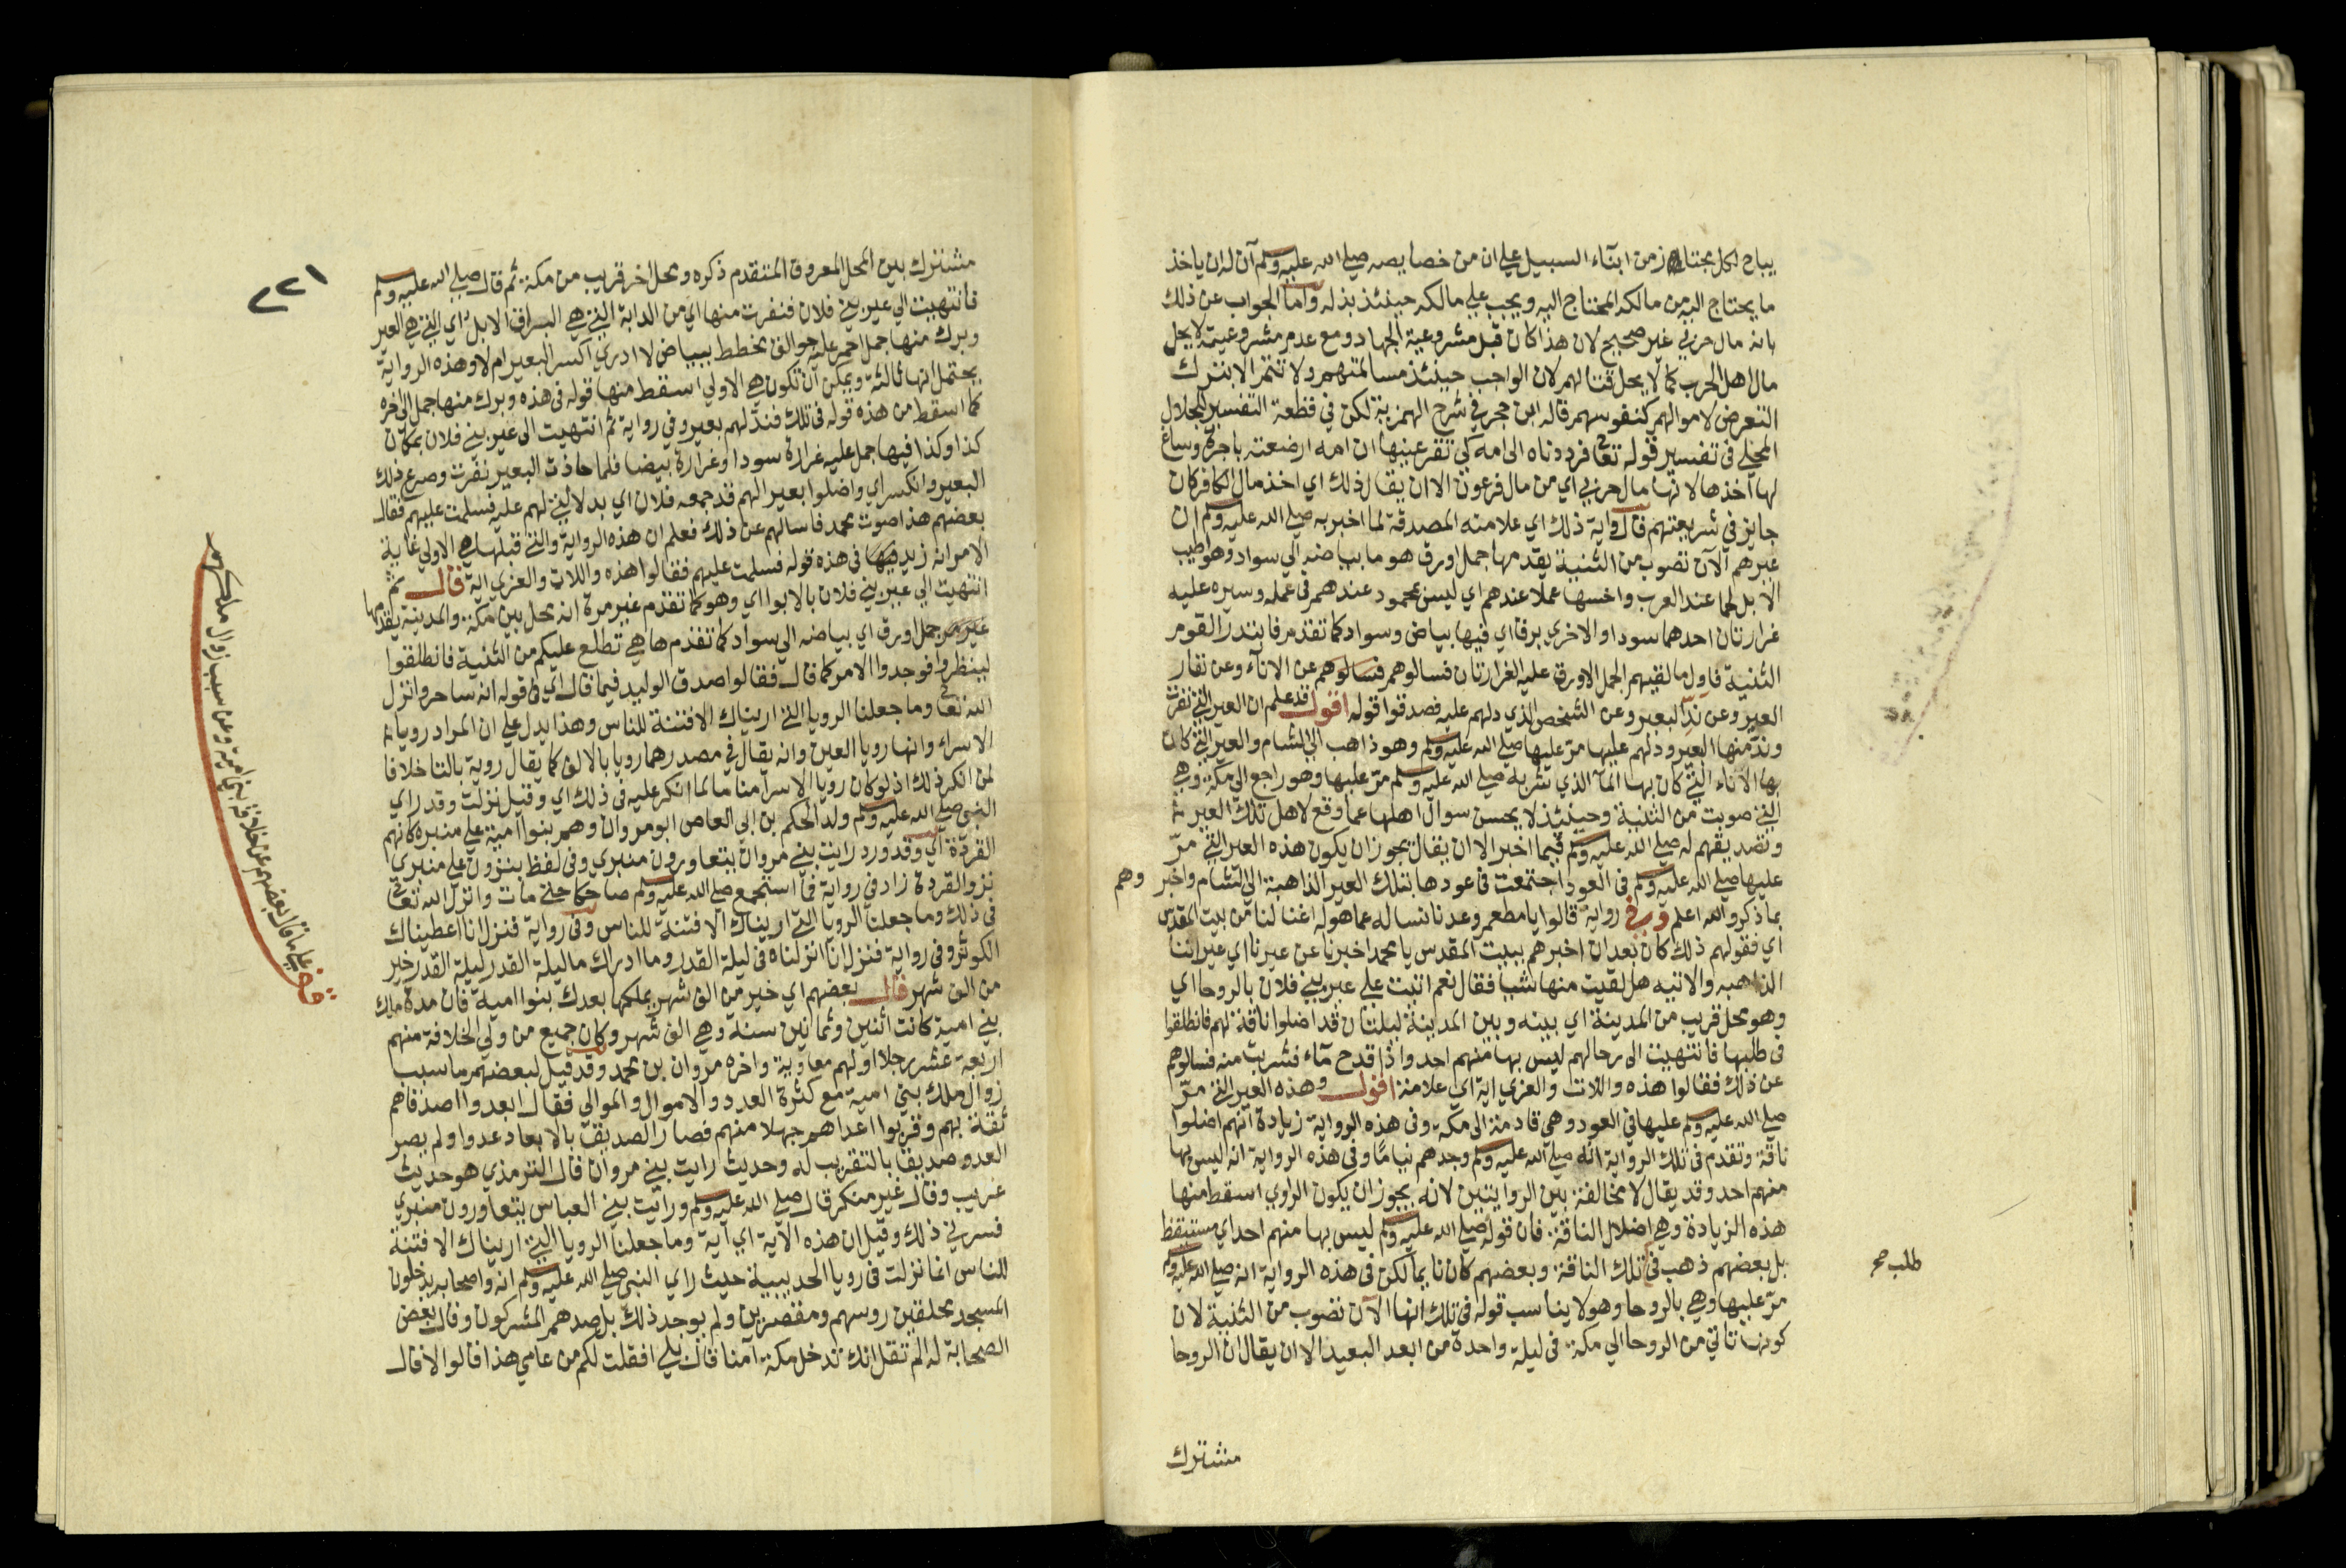 يباح لكل مجتاز من ابناء السبيل علي ان من خصايصه صلي الله عليه وسلم ان له ان ياخذ
ما يحتاج اليه من مالكه المحتاج اليه ويجب علي مالكه حينئذ بذله واما الجواب عن ذلك
بانه مال حربي غير صحيح لان هذا كان قبل مشروعية الجهاد ومع عدم مشروعيته لا يحل
مال اهل الحرب كما لا يحل قتالهم لان الواجب حينئذ مسالمتهم ولا تتم الا بترك
التعرض لاموالهم كنفوسهم قاله ابن حجر في شرح الهمزية لكن في قطعة التفسير للجلال
المحلي في تفسير قوله تعالى فرددناه الى امه كي تقر عينها ان امه ارضعته باجرة وساغ
لها اخذها لانها مال حربي اي من مال فرعون الا ان يقال ذلك اي اخذ مال الكافر كان
جايز في شريعتهم قال واية ذلك اي علامته المصدقة لما اخبر به صلي الله عليه وسلم ان
عيرهم الآن تصوب من الثنية يقدمها جمل اورق هو ما بياضه الي سواد وهو اطيب
الابل لحما عند العرب واخسها عملا عندهم اي ليس بمحمود عندهم في عمله وسيره عليه
غرارتان احدهما سودا والاخري برقا اي فيها بياض وسواد كما تقدم فابتدر القوم
الثنية فاول ما لقيهم الجمل الاورق عليه الغرارتان فسالوهم فسالوهم عن الاناء وعن نفار
العير وعن ند البعير وعن الشخص الذي دلهم عليه فصدقوا قوله اقول قد علم ان العير التي نفرت
وند منها البعير ودلهم عليها مر عليها صلي الله عليه وسلم وهو ذاهب الي الشام والعير التي كان
بها الاناء التي كان بها الما الذي شربه صلي الله عليه وسلم مر عليها وهو راجع الي مكة وهي
التي صوبت من الثنية وحينئذ لا يحسن سوال اهلها عما وقع لاهل تلك العير
وتصديقهم له صلي الله عليه وسلم فيما اخبر الا ان يقال يجوز ان يكون هذه العير التي مر
عليها صلي الله عليه وسلم في العود اجتمعت في عودها بتلك العير الذاهبة الي الشام واخبر وهم
بما ذكر والله اعلم وفي رواية قالوا يا مطعم وعدنا نساله عما هو له اغنا لنا من بيت المقدس
اي فقولهم ذلك كان بعد ان اخبرهم ببيت المقدس يا محمد اخبرنا عن عيرنا اي عيراتنا
الذاهبه والاتيه هل لقيت منها شيا فقال نعم اتيت علي عير بني فلان بالروحا اي
وهو محل قريب من المدينة اي بينه وبين المدينة ليلتان قد اضلوا ناقة لهم فانطلقوا
في طلبها فانتهيت الى رحالهم ليس بها منهم احد واذا قدح ماء فشربت منه فسالوهم
عن ذلك فقالوا هذه واللات والعزي اية اي علامة اقول وهذه العير التي مر
صلي الله عليه وسلم عليها في العود وهي قادمة الى مكة وفي هذه الرواية زيادة انهم اضلوا
ناقة وتقدم في تلك الرواية انه صلي الله عليه وسلم وجدهم نياما وفي هذه الرواية انه ليس بها
منهم احد وقد يقال لا مخالفة بين الروايتين لانه يجوز ان يكون الراوي اسقط منها
هذه الزيادة وهي اضلال الناقة فان قوله صلي الله عليه وسلم ليس بها منهم احد اي مستيقظ
بل بعضهم ذهب في تلك الناقة وبعضهم كان نايما لكن في هذه الرواية انه صلي الله عليه وسلم
طلب صح
مر عليها وهي بالروحا وهو لا يناسب قوله في تلك انها الآن تصوب من الثنية لان
كونها تاتي من الروحا الي مكة في ليلة واحدة من ابعد البعيد الا ان يقال ان الروحا
مشترك
٢٢١
مشترك بين المحل المعروف المتقدم ذكره ومحل اخر قريب من مكة ثم قال صلي الله عليه وسلم
فانتهيت الي عير بني فلان فنفرت منها اي من الدابة التي هي البراق الابل اي التي هي العير
وبرك منها جمل احمر عليه جوالق مخطط ببياض لا ادري اكسر البعير ام لا وهذه الرواية
يحتمل انها ثالثة ويمكن ان تكون هي الاولي اسقط منها قوله في هذه وبرك منها جمل الى اخره
كما اسقط من هذه قوله في تلك فند لهم بعير وفي رواية ثم انتهيت الى عير بني فلان بمكان
كذا وكذا فيها جمل عليه غرارة سودا وغرارة بيضا فلما حاذت البعير نفرت وصرع ذلك
البعير وانكسر اي واضلوا بعيرا لهم قد جمعه فلان اي بدلالتي لهم عليه فسلمت عليهم فقال
بعضهم هذا صوت محمد فاسالهم عن ذلك فعلم ان هذه الرواية والتي قبلها هي الاولي غاية
الامر انه زيد فيها في هذه قوله فسلمت عليهم فقالوا هذه واللات والعزي اية قال ثم
انتهيت الي عير بني فلان بالابوا اي وهو كما تقدم غير مرة انه محل بين مكة والمدينة يقدمها
جمل اورق اي بياضه الي سواد كما تقدم ها هي تطلع عليكم من الثنية فانطلقوا
لينظروا فوجدوا الامر كما قال فقالوا صدق الوليد فيما قال اي في قوله انه ساحر وانزل
الله تعالى وما جعلنا الرويا التي اريناك الا فتنة للناس وهذا يدل علي ان المراد رويا
الاسراء وانها رويا العين وانه يقال في مصدرها رويا بالالف كما يقال روية بالتا خلافا
لمن انكر ذلك اذ لو كان رويا الاسرا مناما لما انكر عليه في ذلك اي وقيل نزلت وقد راي
النبي صلي الله عليه وسلم ولد الحكم بن ابي العاص ابو مروان وهم بنوا امية علي منبره كانهم
القردة اي وقد ورد رايت بني مروان يتعاورون منبري وفي لفظ ينزون علي منبري
نزو القردة زاد في رواية فما استجمع صلي الله عليه وسلم ضاحكا حتي مات وانزل الله تعالى
في ذلك وما جعلنا الرويا التي اريناك الا فتنة للناس وفي رواية فنزل انا اعطيناك
الكوثر وفي رواية فنزل انا انزلناه في ليلة القدر وما ادراك ما ليلة القدر ليلة القدر خير
من الف شهر قال بعضهم اي خير من الف شهر يملكها بعدك بنوا امية فان مدة ملك
بني امية كانت اثنين وثمانين سنة وهي الف شهر وكان جميع من ولي الخلافة منهم
اربعة عشر رجلا اولهم معاوية واخره مروان بن محمد وقد قيل لبعضهم ما سبب
زوال ملك بني امية مع كثرة العدد والاموال والموالي فقال ابعدوا اصدقاهم
ثقة بهم وقربوا اعداهم جهلا منهم فصار الصديق بالابعاد عدوا ولم يصر
العدو صديقا بالتقريب له وحديث رايت بني مروان قال الترمذي هو حديث
غريب وقال غيره منكر قال صلي الله عليه وسلم ورايت بني العباس يتعاورون منبري
فسرني ذلك وقيل ان هذه الآية اي آية وما جعلنا الرويا التي اريناك الا فتنة
للناس انما نزلت في رويا الحديبية حيث راي النبي صلي الله عليه وسلم انه واصحابه يدخلون
المسجد محلقين روسهم ومقصرين ولم يوجد ذلك بل صدهم المشركون وقال بعض
الصحابة له الم تقل انك تدخل مكة آمنا قال بلي افقلت لكم من عامي هذا قالوا لا قال
قف علي ما قال بعضهم عن خلافة بني امية وعن سبب زوال ملكهم